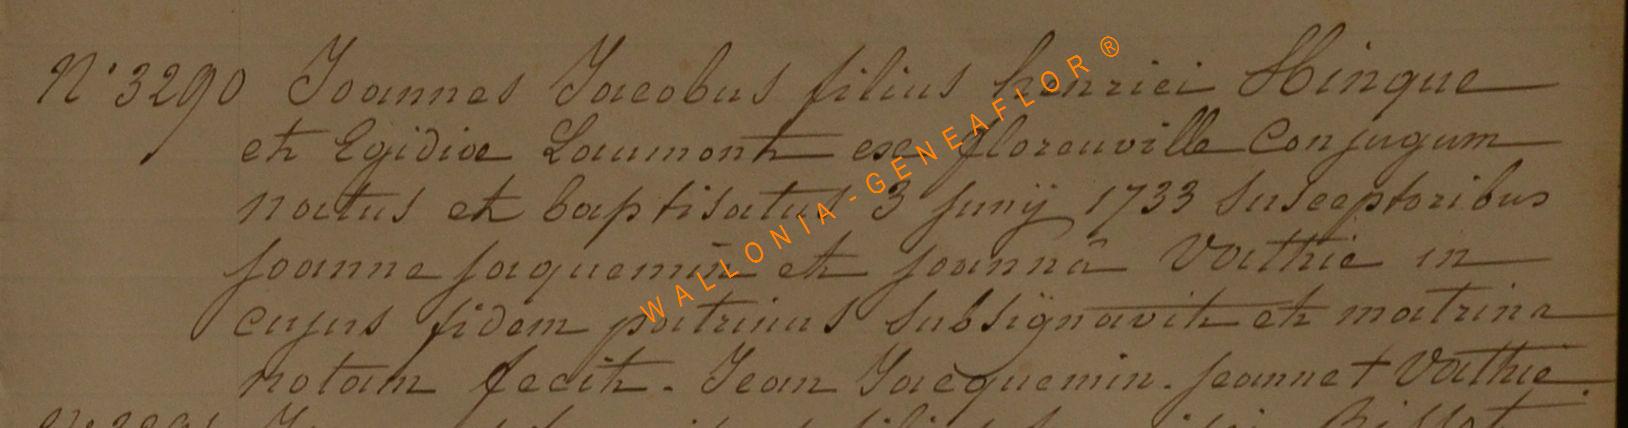 N° 3290 Joannes Jacobus filius henrici Hinque
et Egidia Laumont ex florenville Conjugum
natus et baptisatus 3 junÿ 1733 Susceptoribus
joanne jaquemin et joannâ Vathie in
cujus fidem patrinus Subsignavit et matrina
notam fecit. Jean Jacquemin. jeanne + Vathie.
WALLONIA-GENEAFLOR®